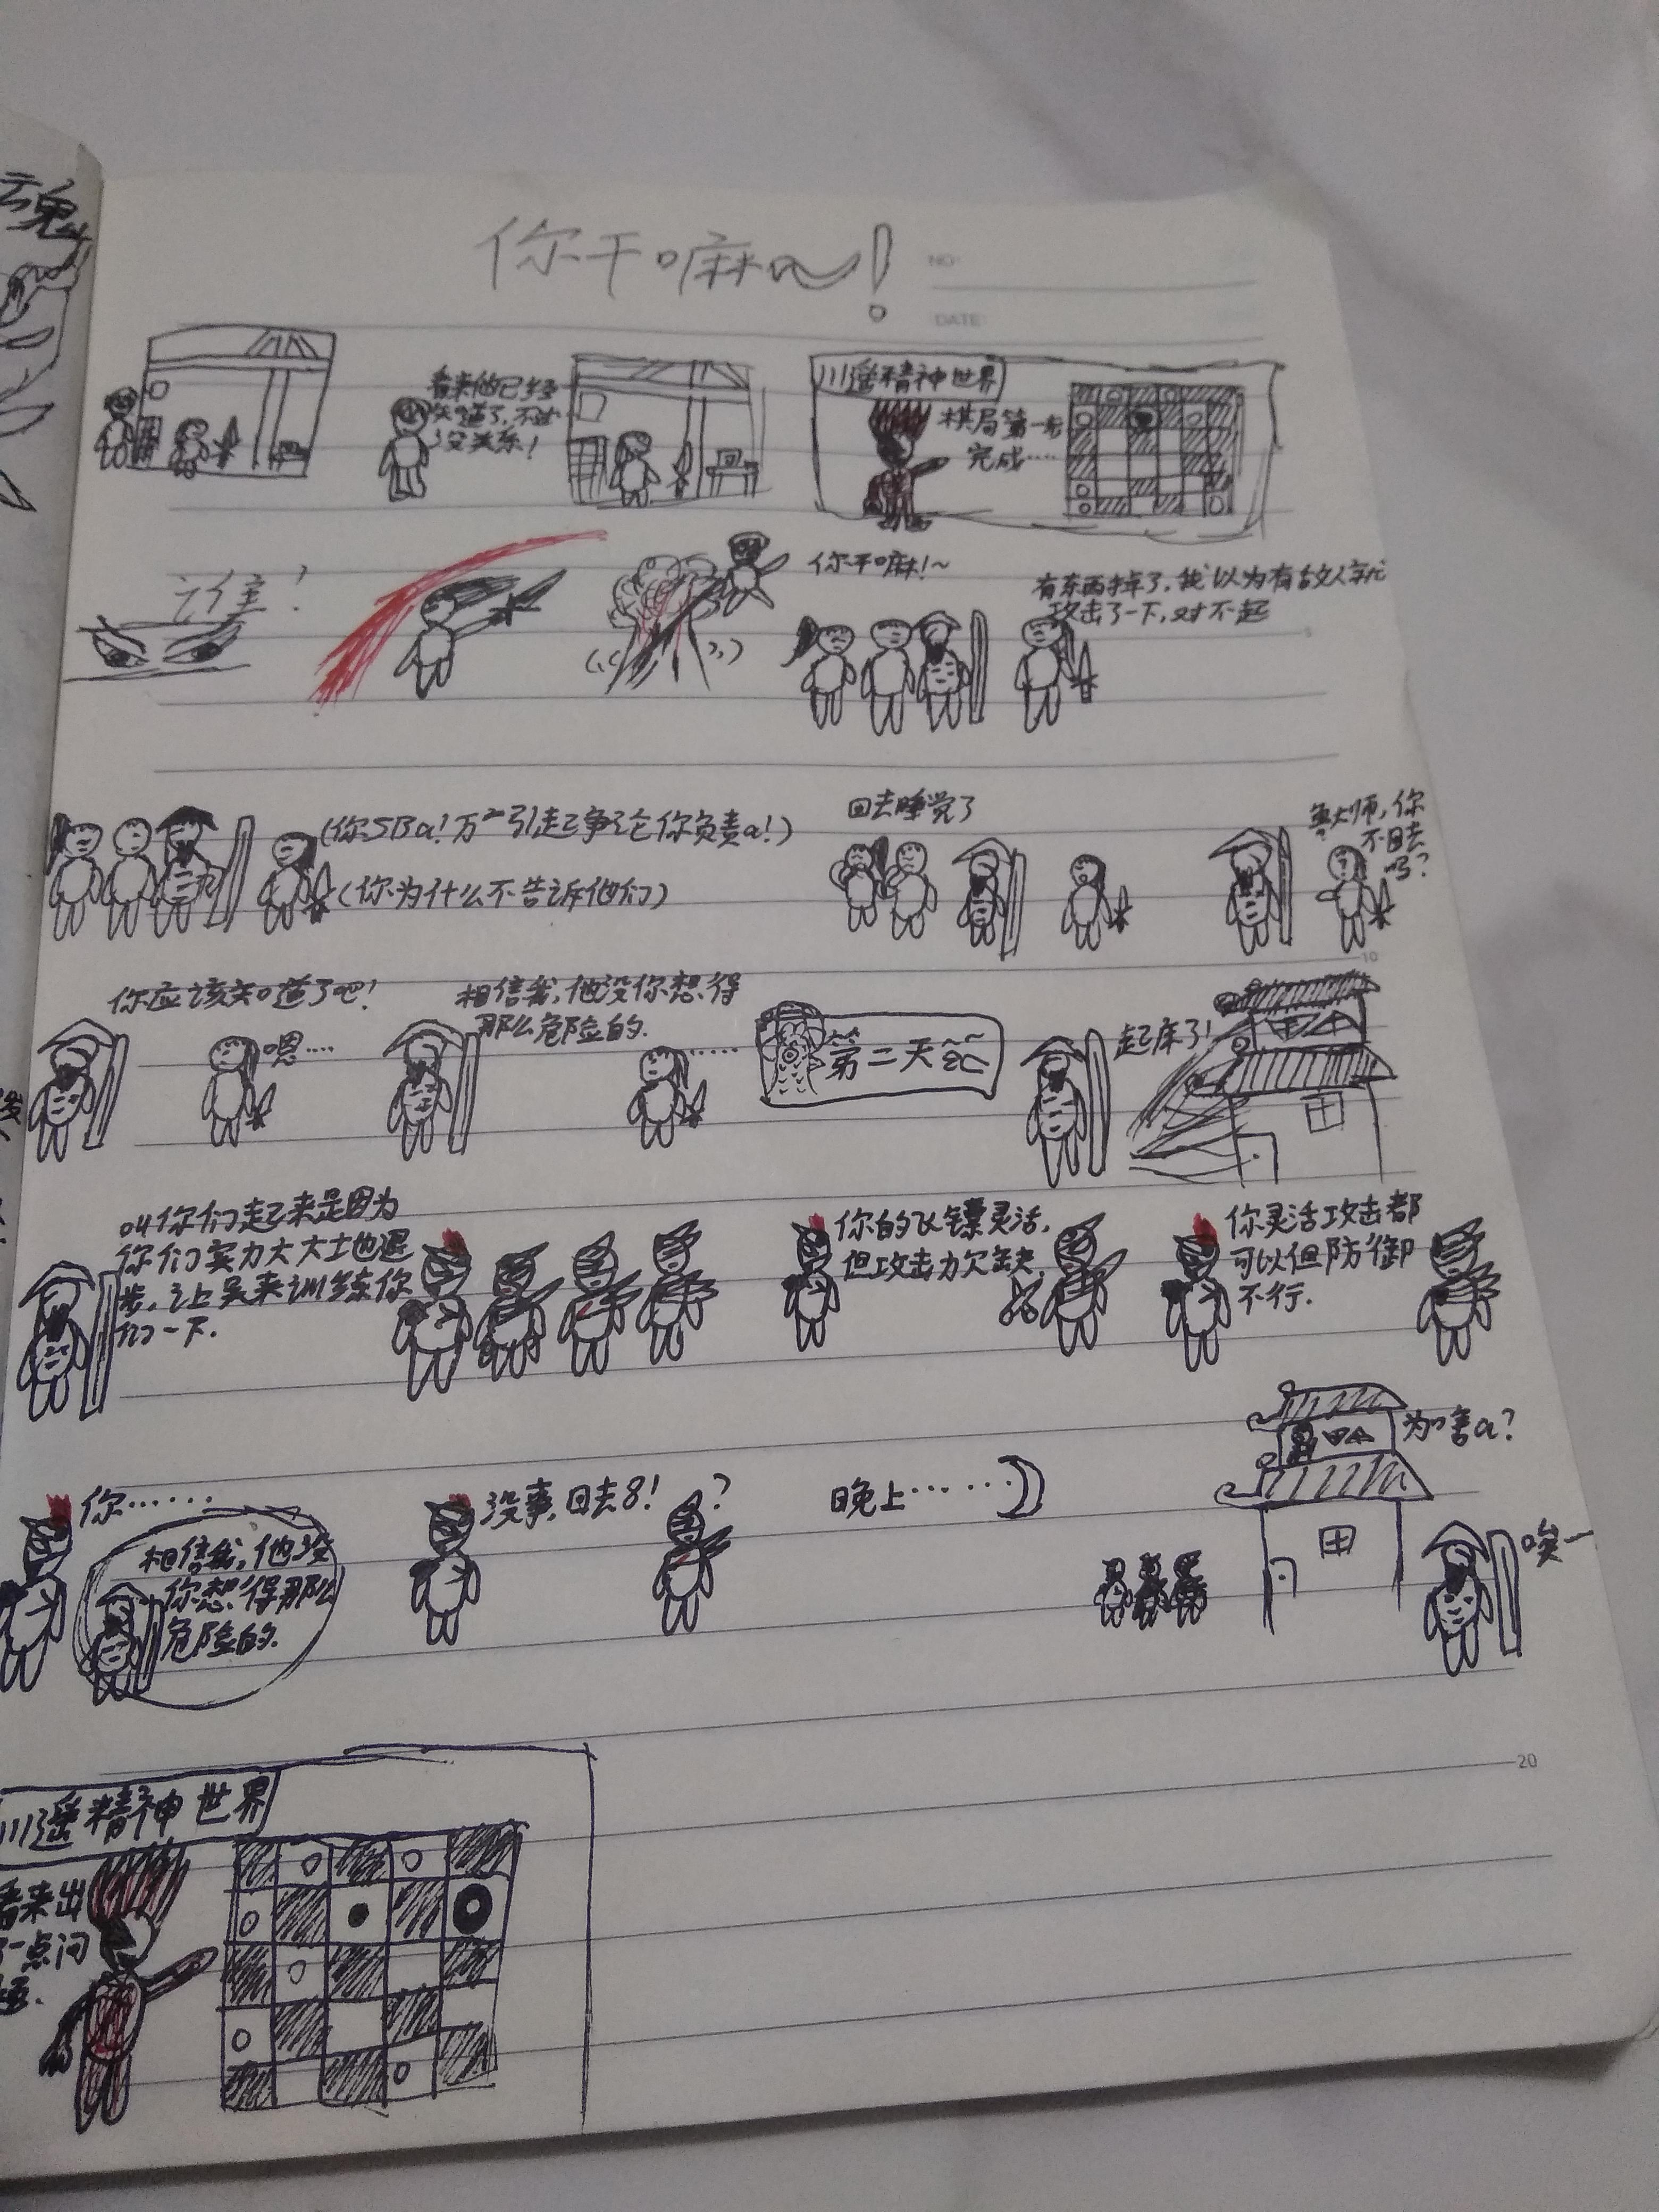 魂
你干嘛a~!
NO:
DATE:
看来他已经
知道了,不过
没关系!
川遥精神世界
棋局第一步
完成……
谁!
你干嘛!~
有东西掉了,我以为有敌人就
攻击了一下,对不起
5
(你SBa!万一引起争论你负责a!)
(你为什么不告诉他们)
回去睡觉了
大师,你
不回去
吗?
10
你应该知道了吧!
嗯……
相信我,他没你想得
那么危险的.
……
第二天
起床了!
叫你们起来是因为
你们实力大大土地退
步,让吴来训练你
们一下.
你的飞镖灵活,
但攻击力欠缺
你灵活攻击都
可以但防御
不行.
你……
相信我,他没
你想得那么
危险的.
没事,回去8!
?
晚上……
为啥a?
唉一
20
川遥精神世界
看来出
了一点问
题.